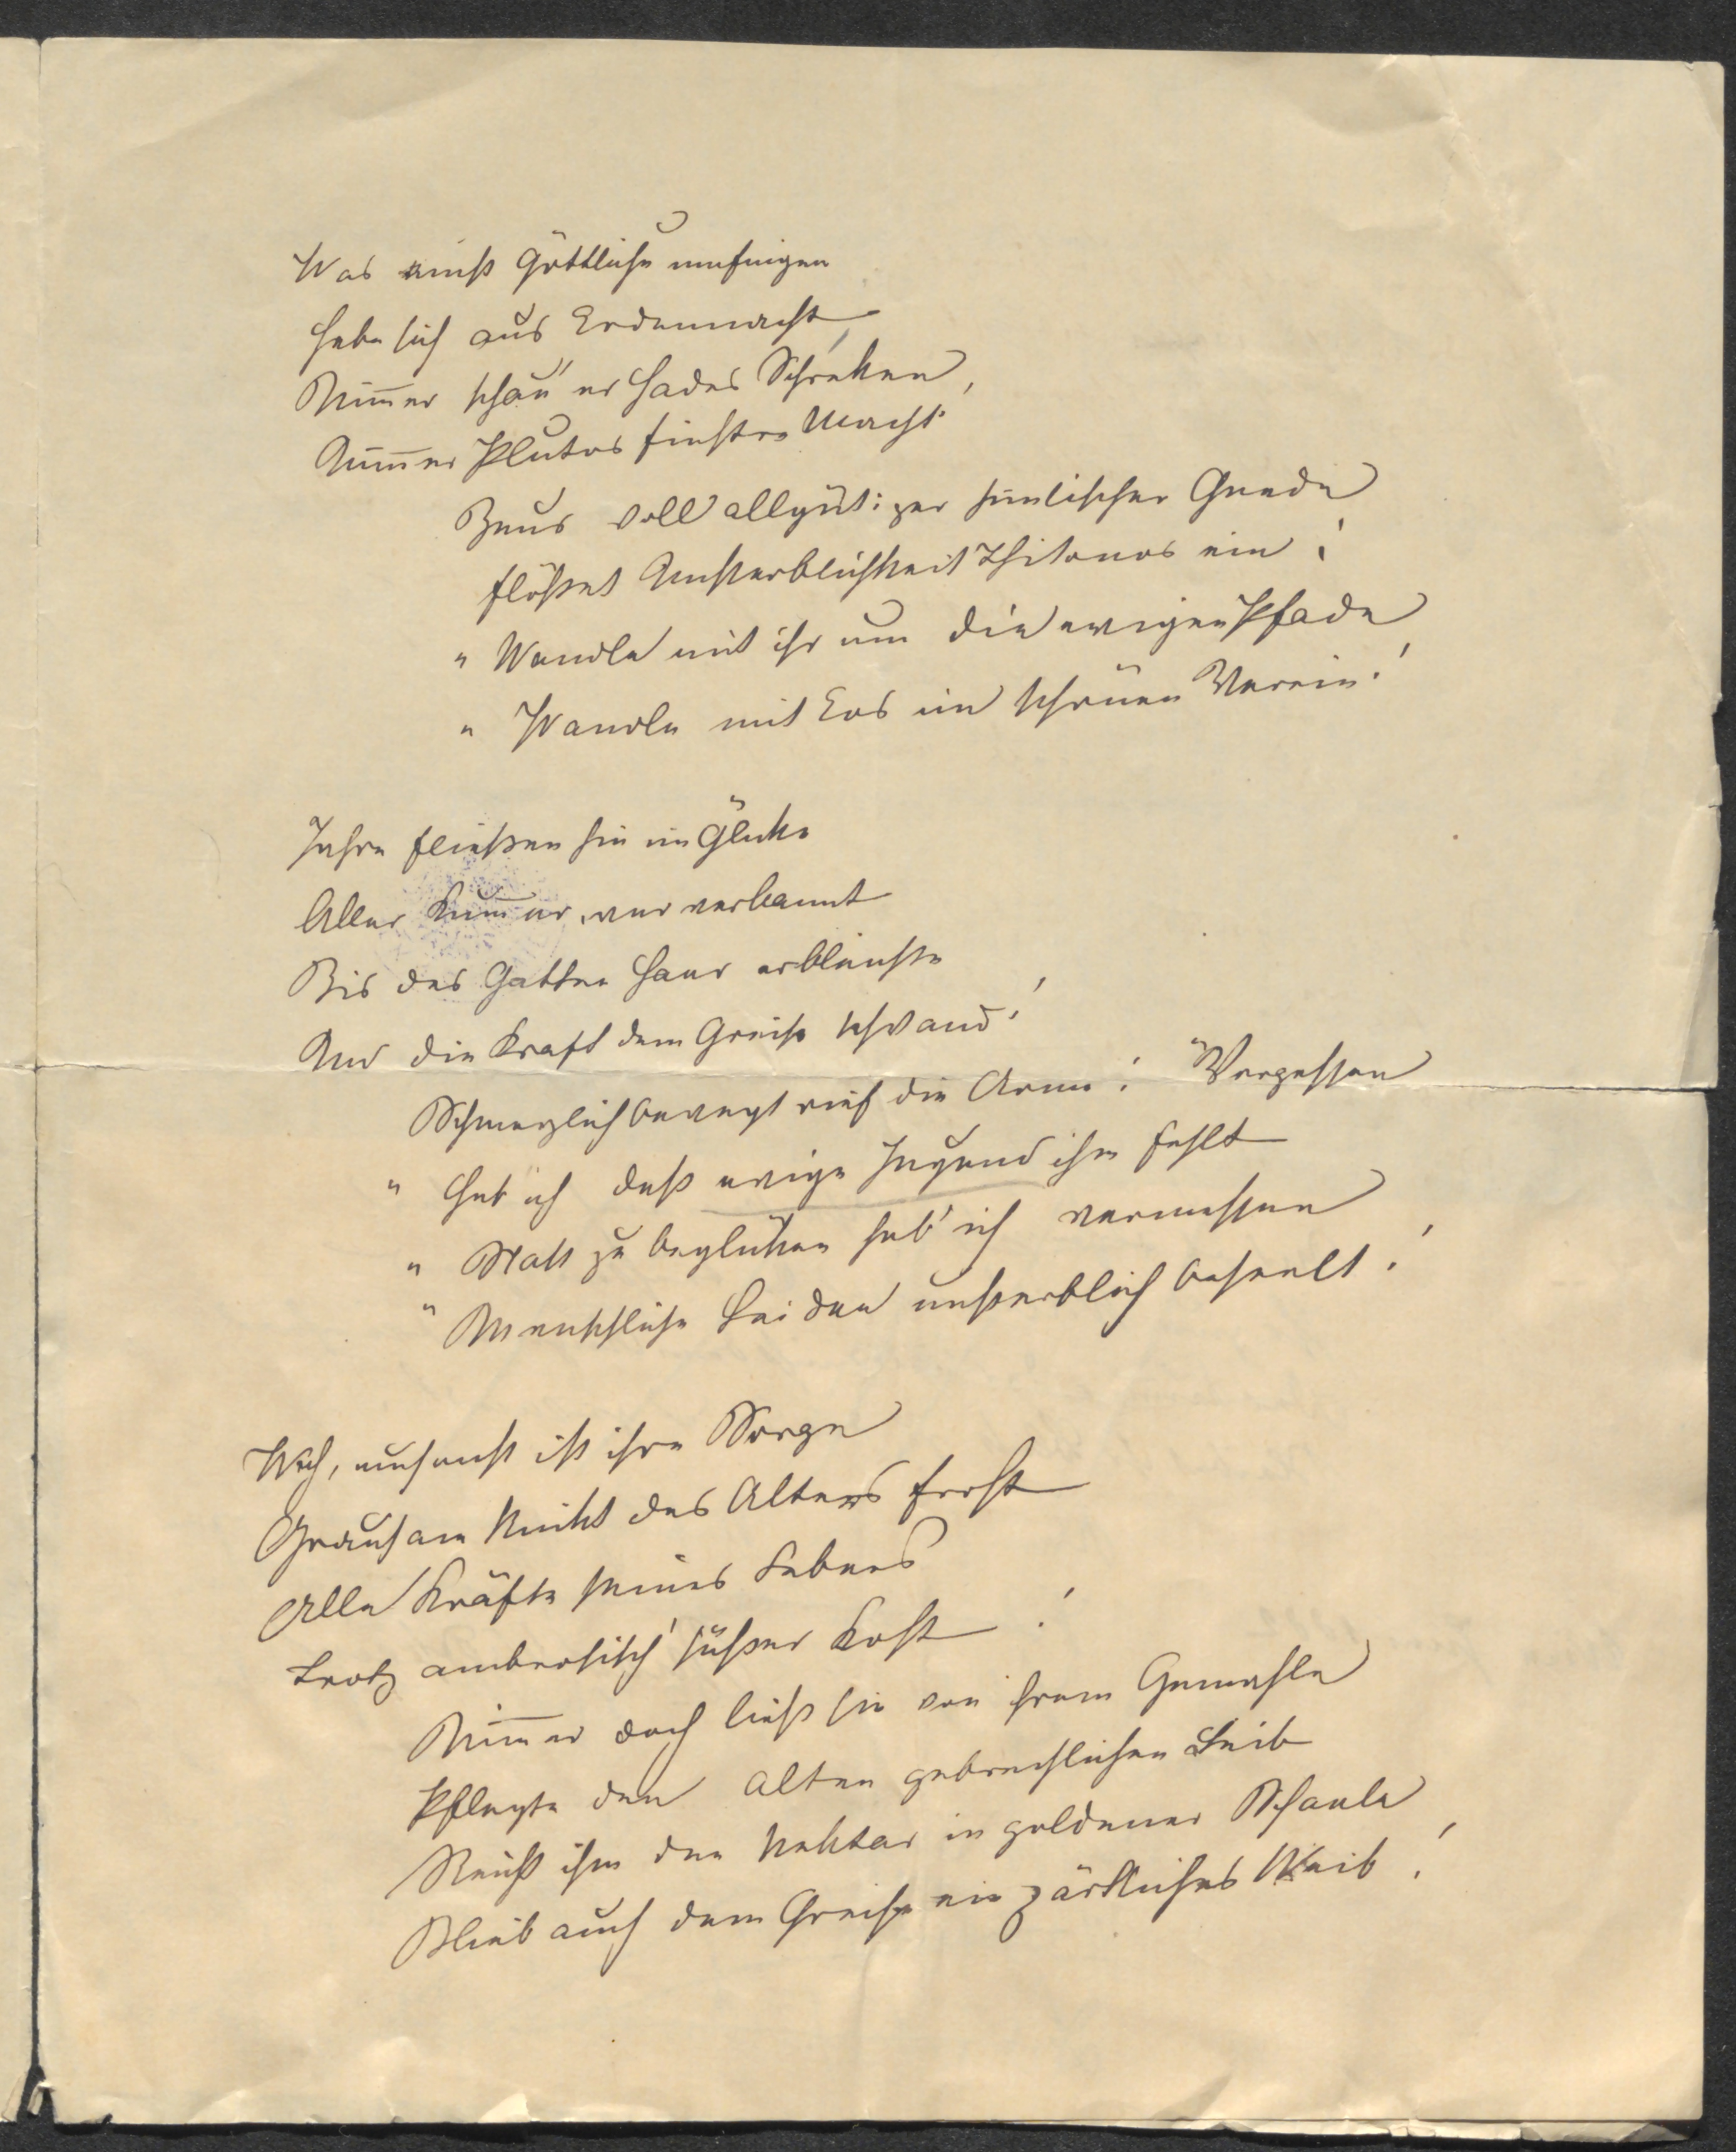 Was einst Göttliche umfingen
Hebe sich aus Erdennacht
Nim̅er schau' er Hades Schreken,
Nim̅er Plutos finstre Macht
Zeus voll allgüt: ger himlischer Gnade
flößet Unsterblichkeit Thitonos ein:
" Wandle mit ihr um die ewigen Pfade
" Wandle mit Eos im schönen Verein!
Jahre fließen hin im Glüke
Aller Kum̅er war verbannt
Bis des Gatten Haar erbleichte
Und die Kraft dem Greise schwand!
Schmerzlich bewegt rief die Arme: "Vergessen
" Hab' ich daß ewige Jugend ihm fehlt
" Statt zu beglüken hab' ich vermessen
" Menschliche Leiden unsterblich beseelt!
Weh, umsonst ist ihre Sorge
Grausam knikt des Alters Frost
Alle Kräfte seines Lebens
Trotz ambrosisch' süßer Kost!
Nim̅er doch ließ sie von ihrem Gemahle
Pflegte den alten gebrechlichen Leib
Reicht ihm den Nektar in goldener Schaale
Blieb auch dem Greise ein zärtliches Weib!